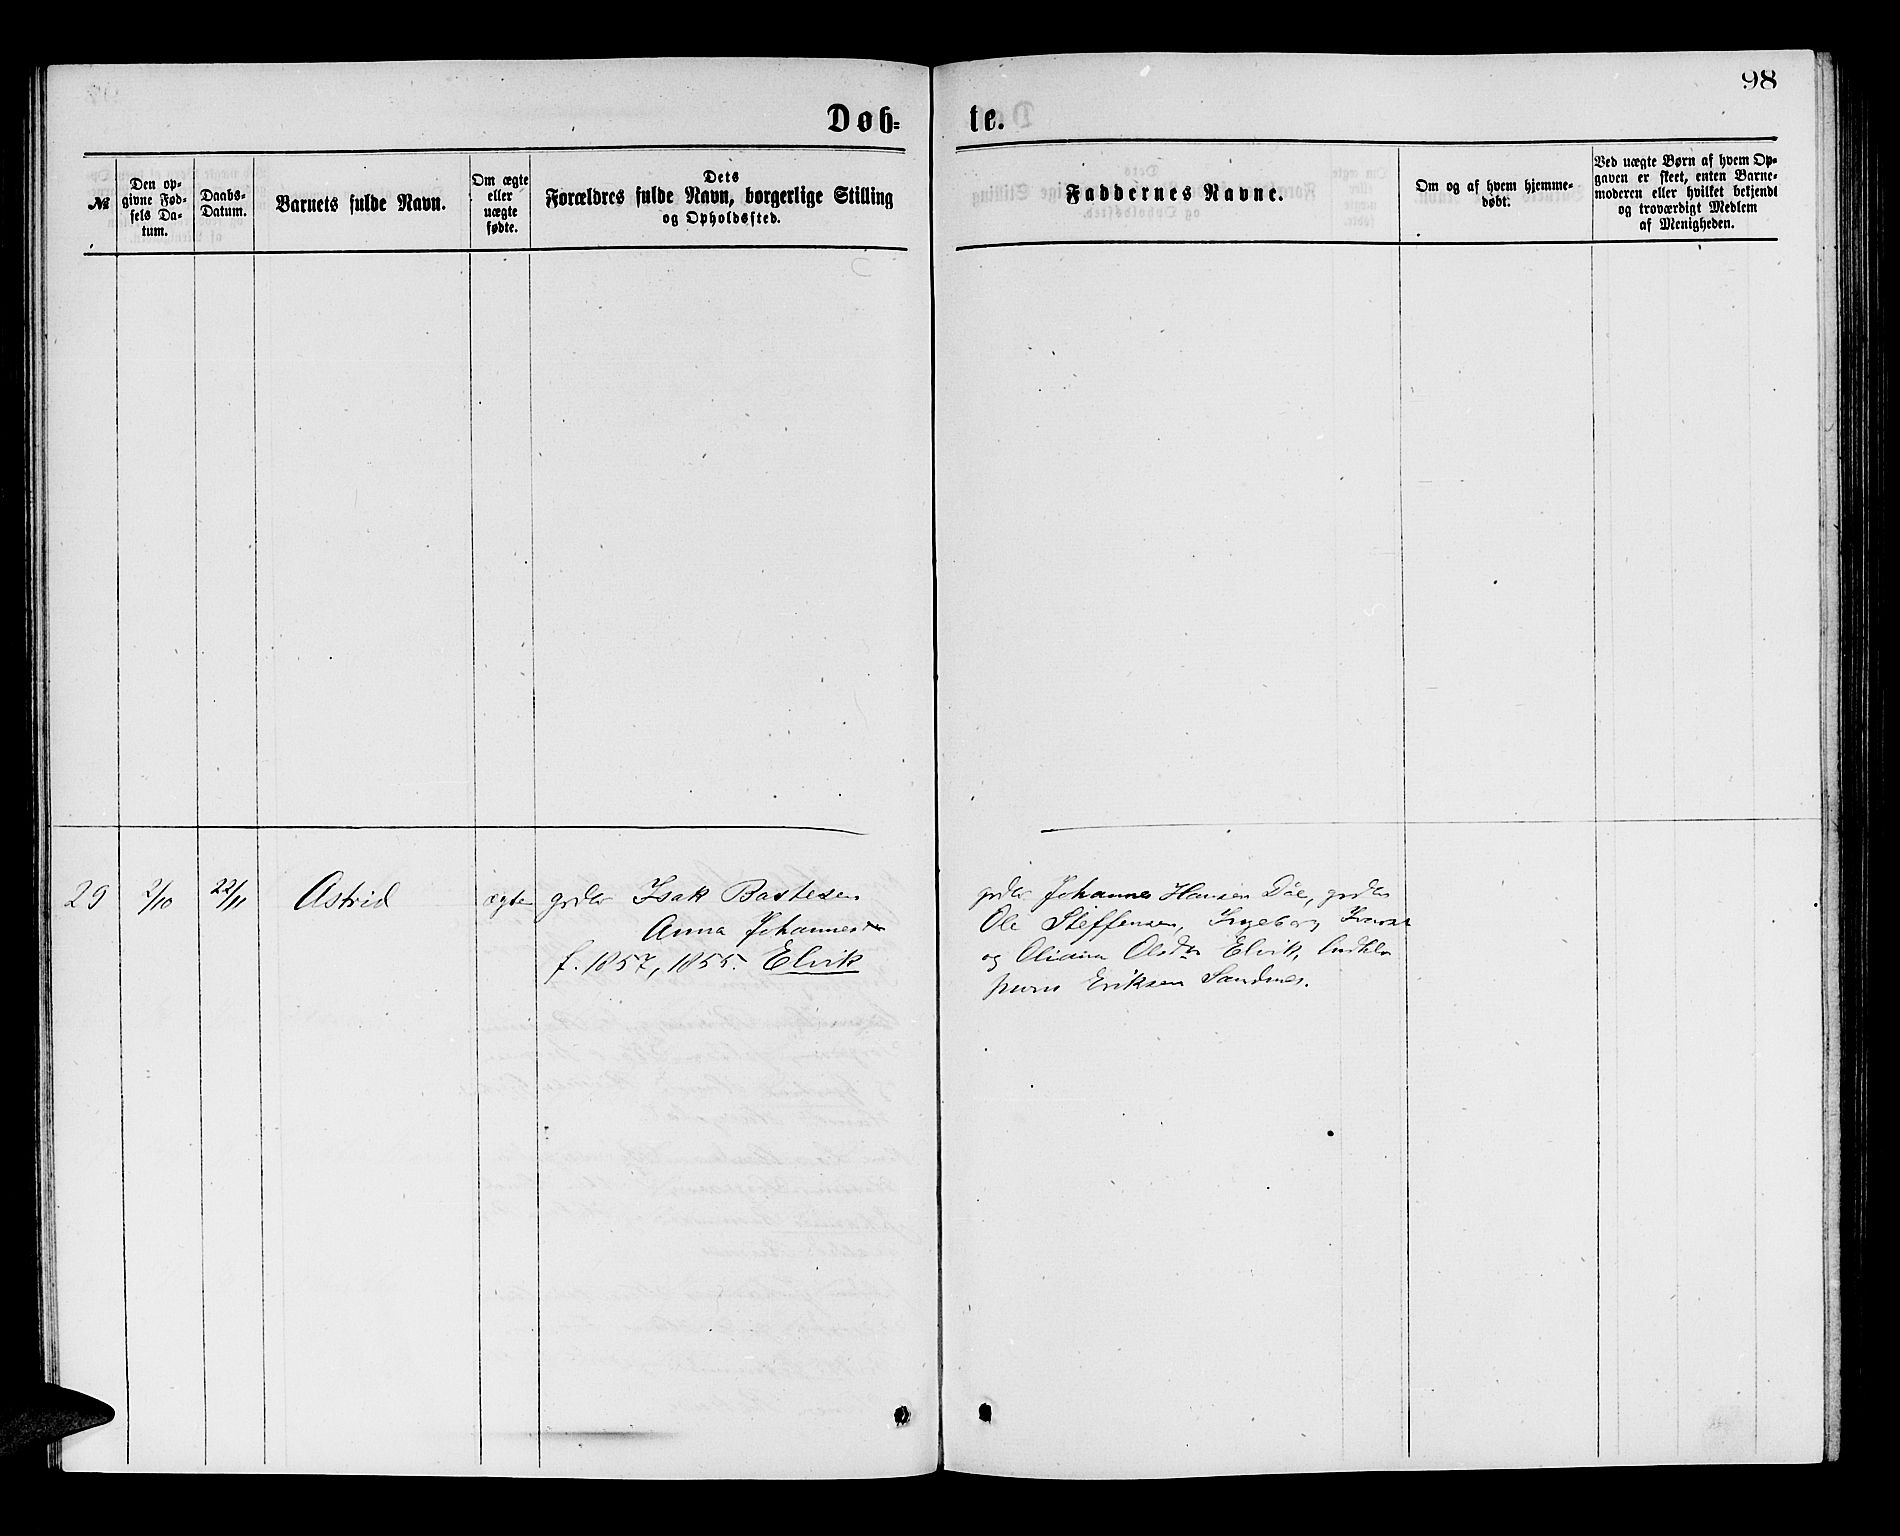 98
Døb-
te.
№
Den op-
givne Fød-
sels Da-
tum.
Daabs-
Datum.
Barnets fulde Navn.
Om ægte
eller
uægte
fødte.
Dets
Forældres fulde Navn, borgerlige Stilling
og Opholdssted.
Faddernes Navne.
Om og af hvem hjemme-
døbt.
Ved uægte Børn af hvem Op-
gaven er skeet, enten Barne-
moderen eller hvilket bekjendt
og troværdigt Medlem
af Menigheden.
29
2/10
22/11
Astrid
ægte
grdbr Isak Bastesen
Anna Johannesdtr
f. 1857, 1855. Elvik
grdbr Johannes Hansen Døe, grdbr
Ole Steffensen, Ingeborg
og Olsdtr Elvik,
Eriksen Sandnes.